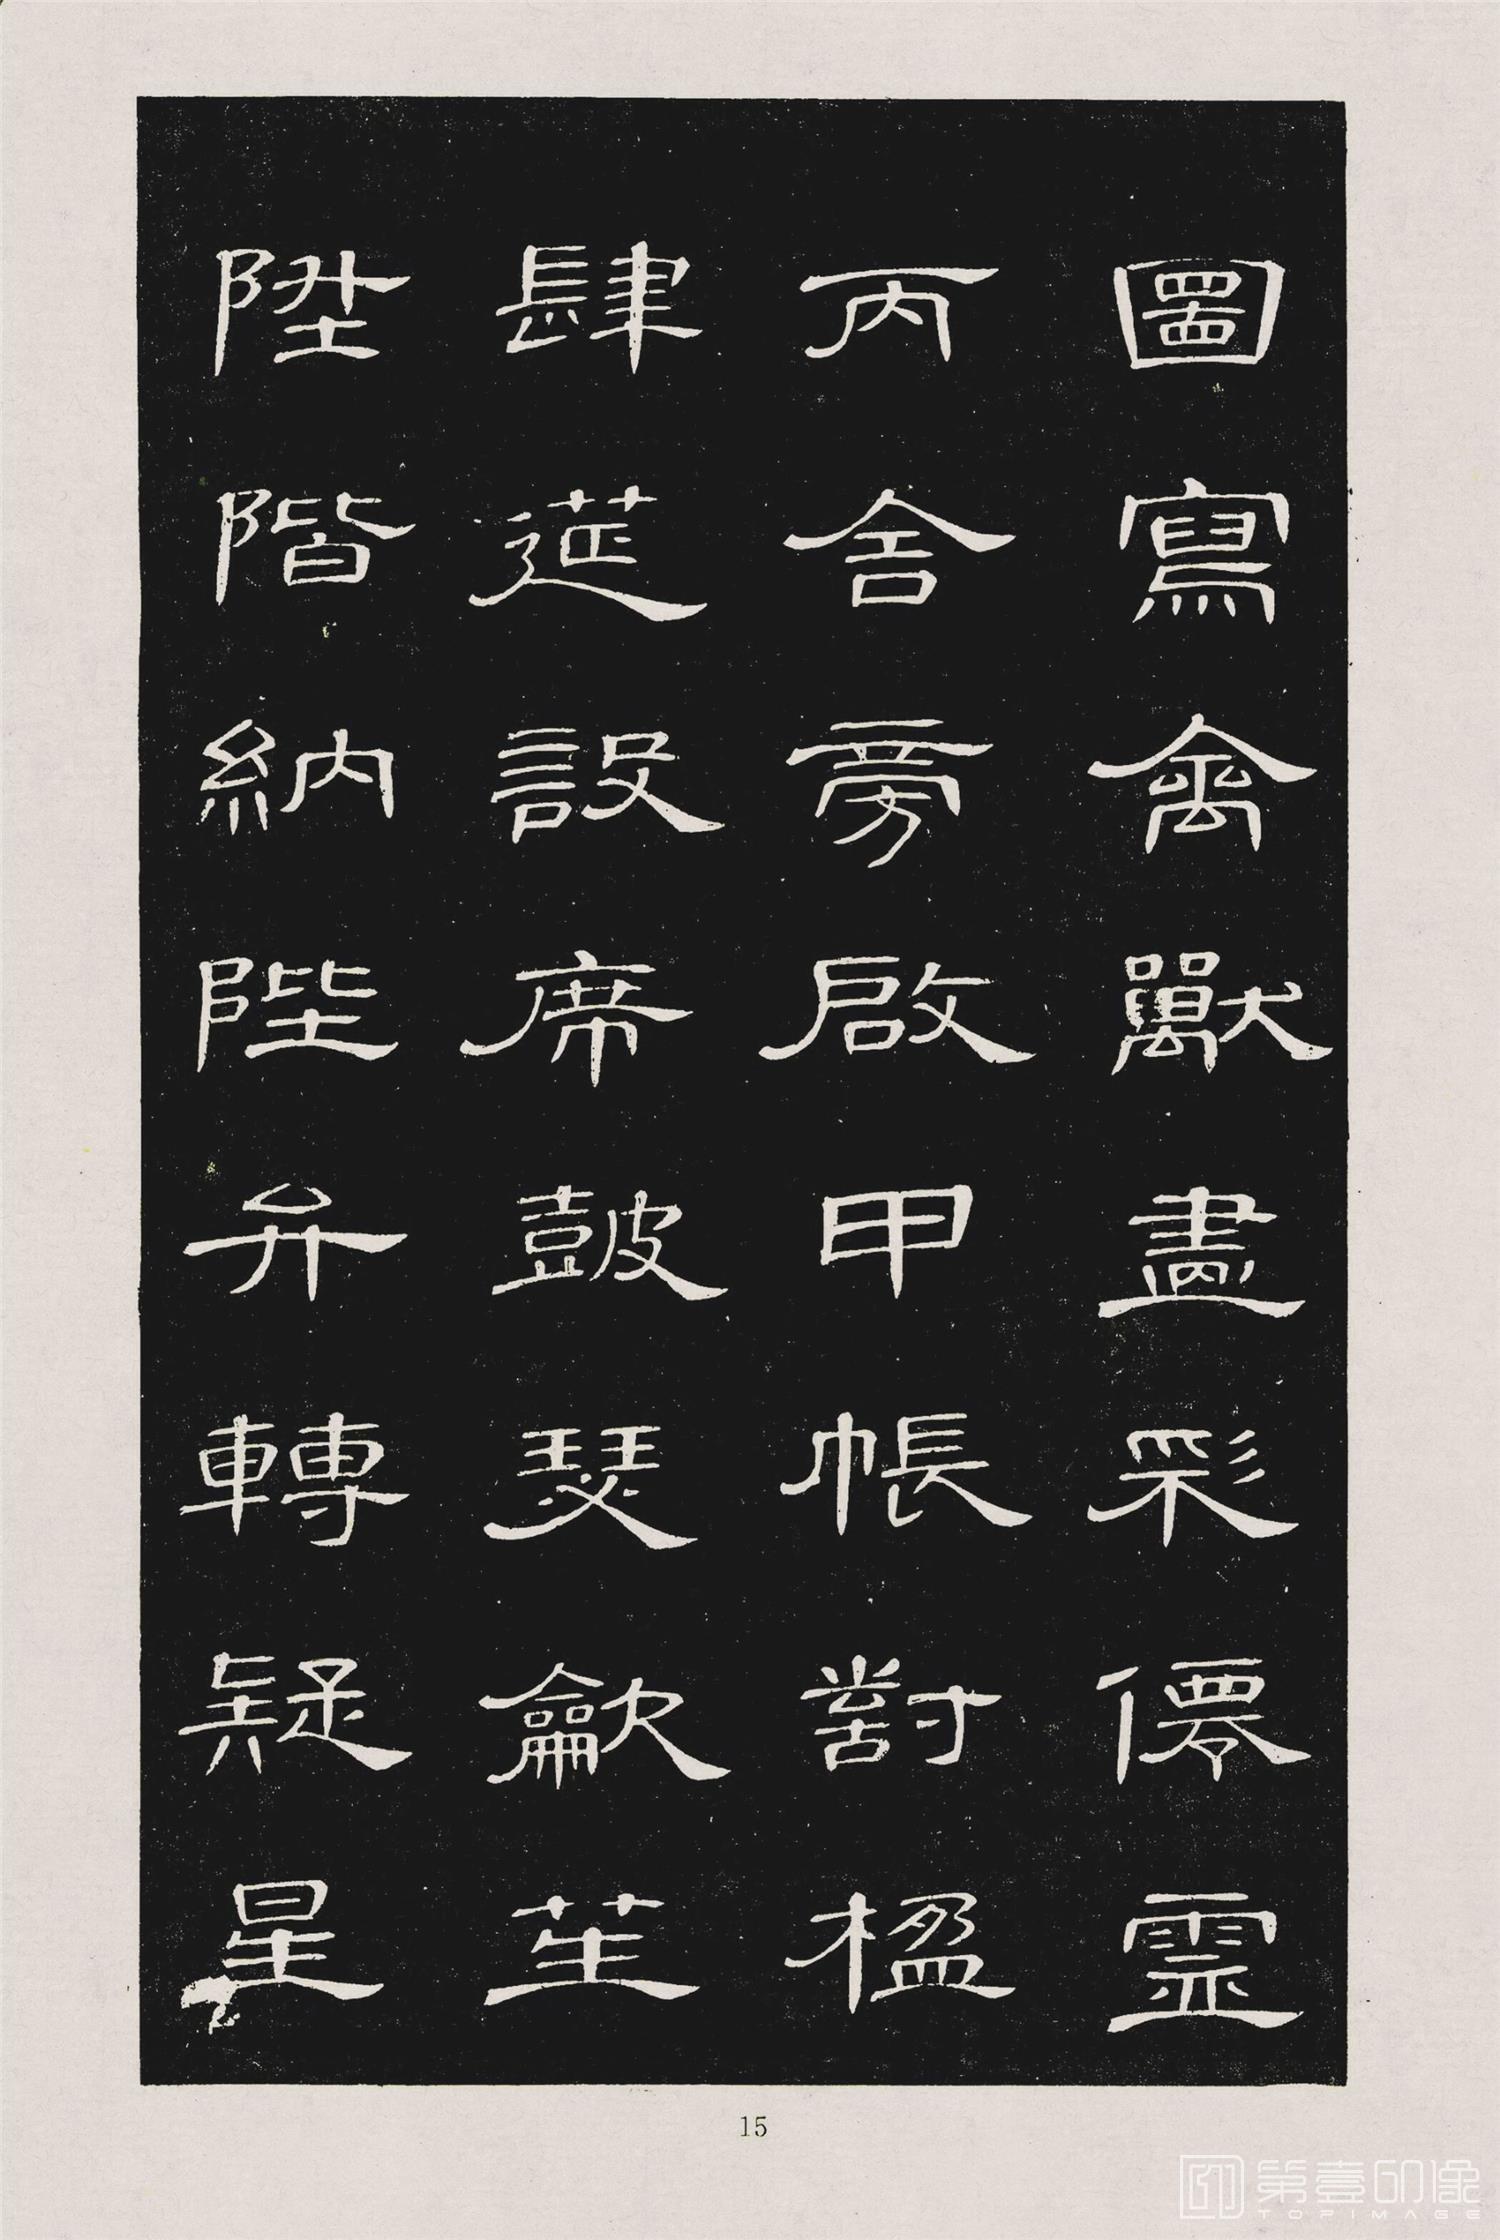 圖寫禽獸畫彩僊靈
丙舍旁啟甲帳對楹
肆莚設席鼓瑟龡笙
陞階納陛弁轉疑星
15
第壹印像
TOPIMAGE